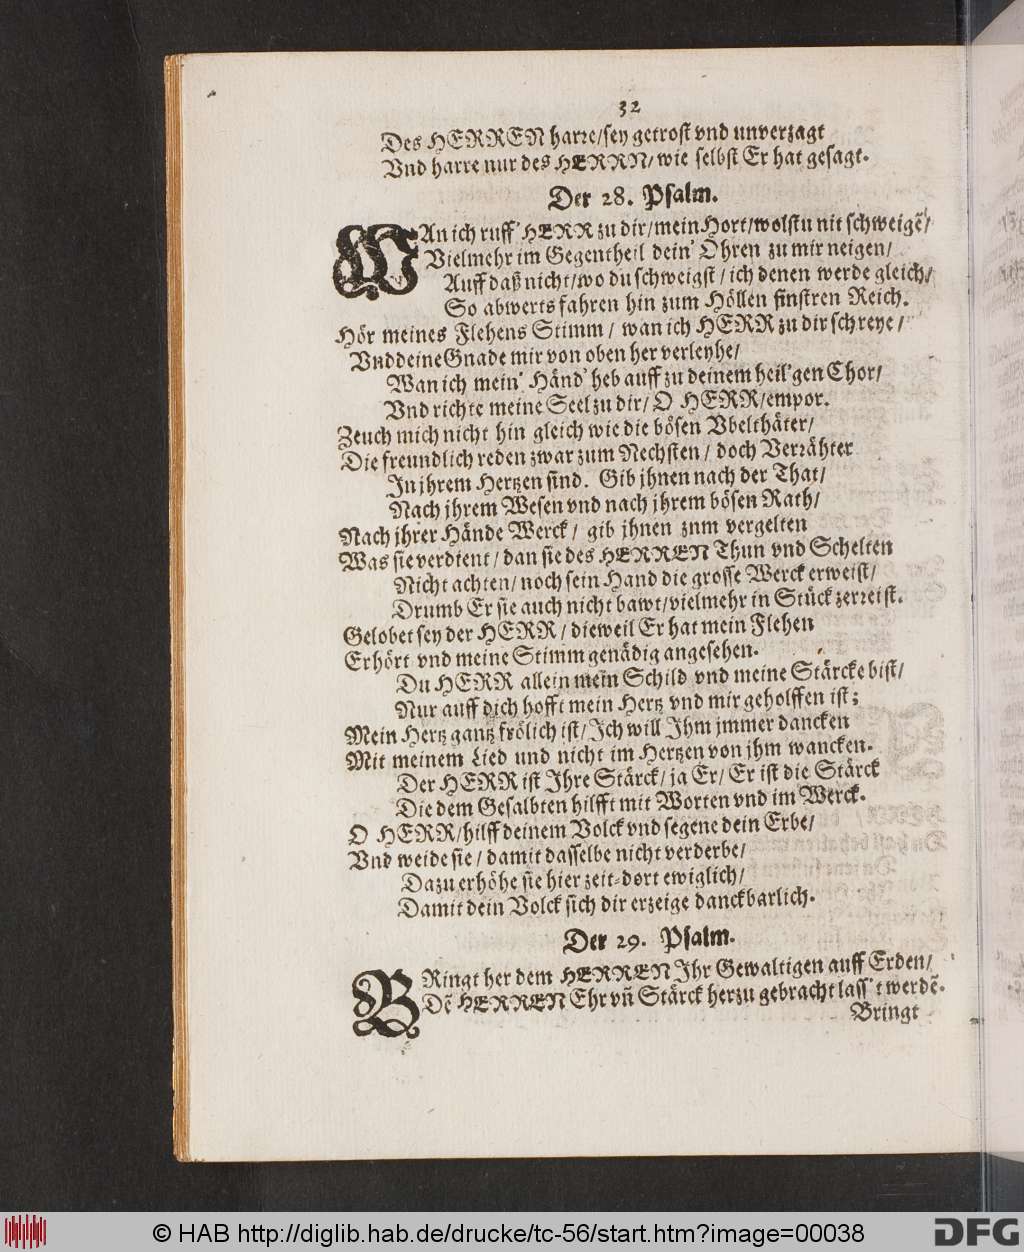 32
Des HERREN harre/sey getrost vnd unverzagt
Vnd harre nur des HERRN/wie selbst Er hat gesagt.
Der 28. Psalm.
WAn ich ruff' HERR zu dir/mein Hort/wolstu nit schweigẽ/
Vielmehr im Gegentheil dein' Ohren zu mir neigen/
Auff daß nicht/wo du schweigst/ich denen werde gleich/
So abwerts fahren hin zum Höllen finstren Reich.
Hör meines Flehens Stimm/ wan ich HERR zu dir schreye/
Vnd deine Gnade mir von oben her verleyhe/
Wan ich mein' Händ' heb auff zu deinem heil'gen Chor/
Vnd richte meine Seel zu dir/ O HERR/empor.
Zeuch mich nicht hin gleich wie die bösen Vbelthäter/
Die freundlich reden zwar zum Nechsten/ doch Verrähter
In jhrem Hertzen sind. Gib jhnen nach der That/
Nach jhrem Wesen vnd nach jhrem bösen Rath/
Nach jhrer Hände Werck/ gib jhnen znm vergelten
Was sie verdient/ dan sie des HERREN Thun vnd Schelten
Nicht achten/ noch sein Hand die grosse Werck erweist/
Drumb Er sie auch nicht bawt/vielmehr in Stück zerreist.
Gelobet sey der HERR/ dieweil Er hat mein Flehen
Erhört vnd meine Stimm genädig angesehen.
Du HERR allein mein Schild vnd meine Stärcke bist/
Nur auff dich hofft mein Hertz vnd mir geholffen ist;
Mein Hertz gantz frölich ist/Ich will Ihm jmmer dancken
Mit meinem Lied und nicht im Hertzen von jhm wancken.
Der HERR ist Ihre Stärck/ ja Er/ Er ist die Stärck
Die dem Gesalbten hilfft mit Worten vnd im Werck.
O HERR/hilff deinem Volck vnd segene dein Erbe/
Vnd weide sie/ damit dasselbe nicht verderbe/
Dazu erhöhe sie hier zeit-dort ewiglich/
Damit dein Volck sich dir erzeige danckbarlich.
Der 29. Psalm.
BRingt her dem HERREN Ihr Gewaltigen auff Erden/
Dẽ HERREN Ehr vñ Stärck herzu gebracht lass't werdẽ.
Bringt
© HAB http://diglib.hab.de/drucke/tc-56/start.htm?image=00038
DFG